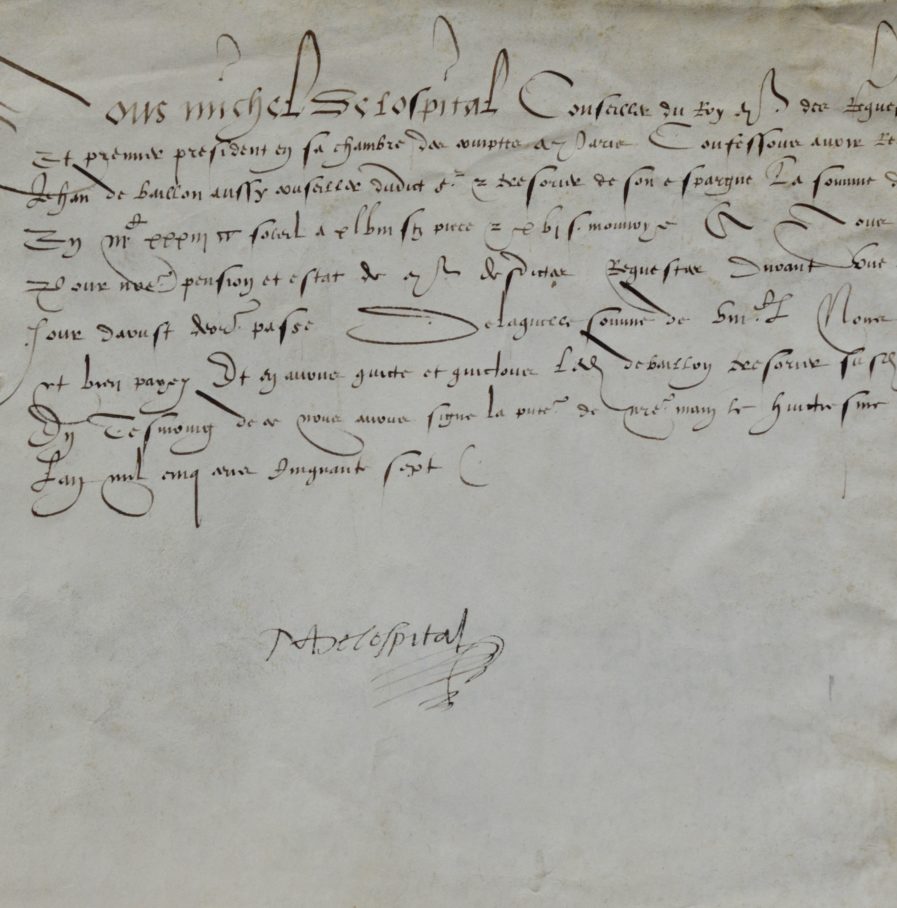 Nous Michel Delospital Conseiller du Roy et des Reques
Et premier president en sa chambre des comptes a Paris Confessons avoir Re
Jehan de baillon aussy conseiller dudict sr et tresorier de son espargne La somme d
En iiic xxxiii soleil a xlviii s piece et xvi s. monnoye A Nous
Pour nre pension et estat de desdictes Requestes Durant
Jour daoust dernr. passe Delaquelle somme de viiic l Nous
et bien payez Et en avons quicte et quictons Led debaillon tresorier susd
En Tesmoing de ce nous avons signe la pnte de nre. main le huictiesme
Lan mil cinq cens cinquante sept
MDelospital